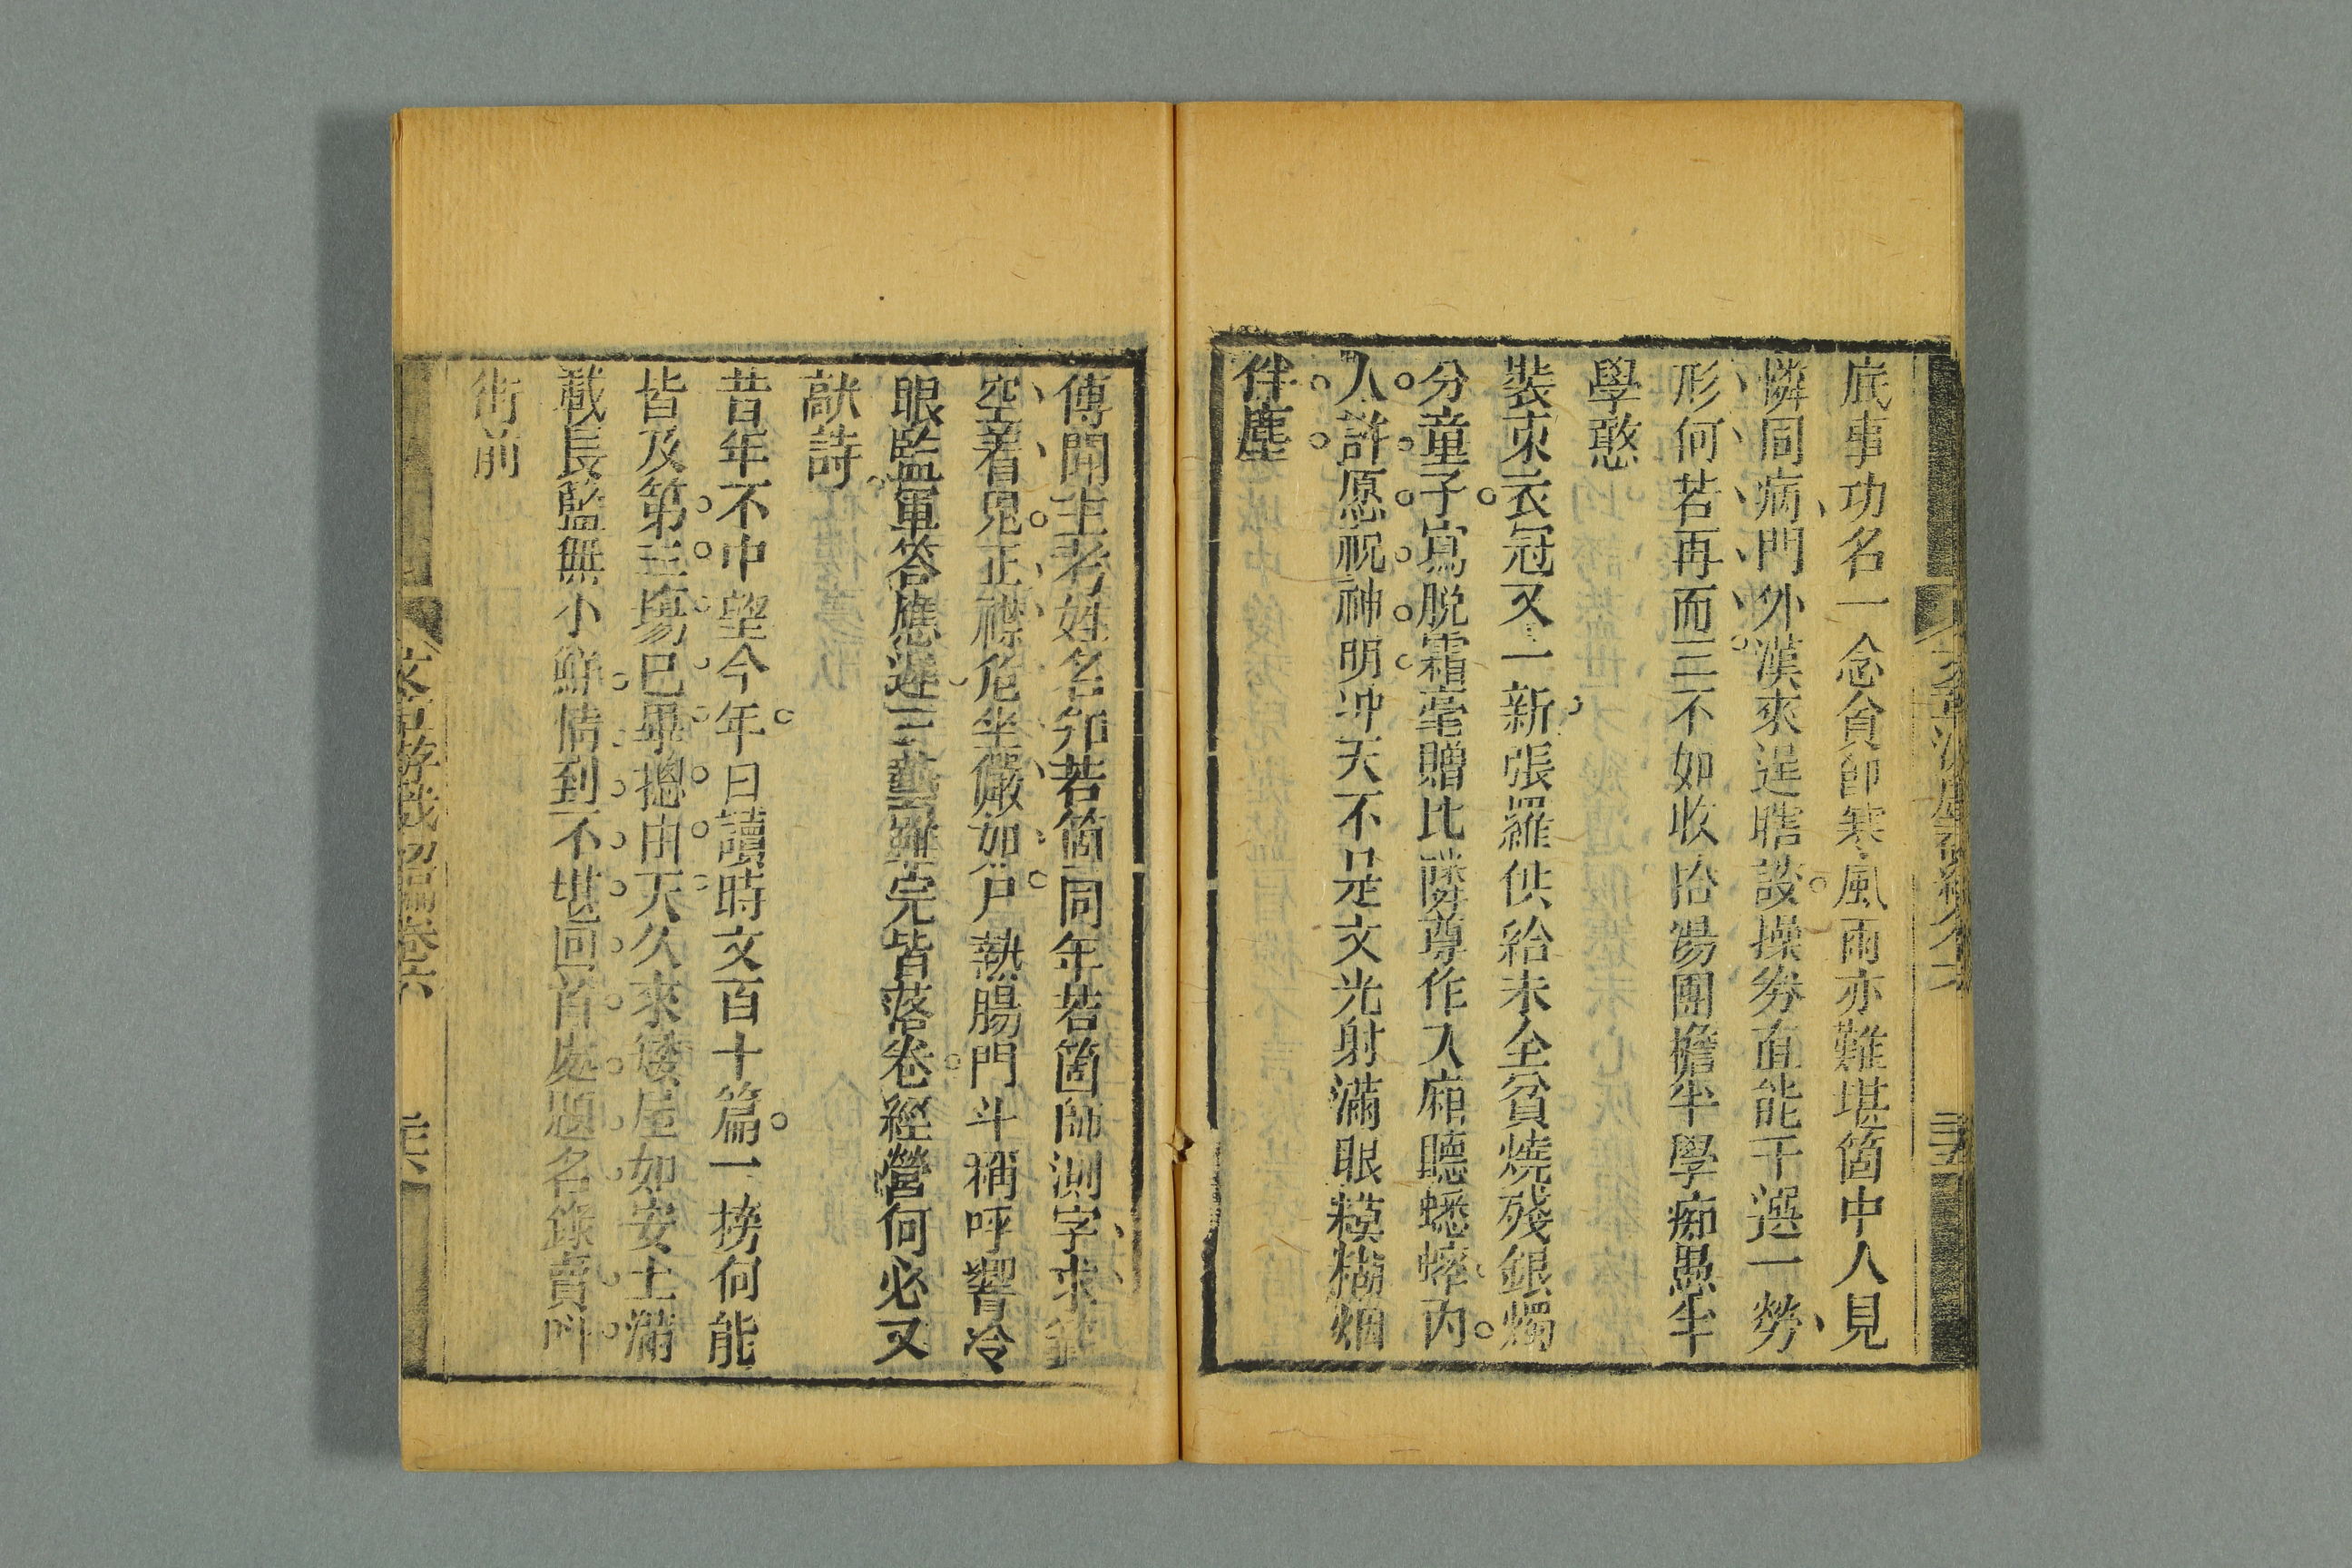 底事功名一念貪卽寒風雨亦難堪箇中人見
憐同病門外漢來逞瞎談操劵直能千選一勞
形何若再而三不如收拾湯團擔半學痴愚半
學憨
裝束衣冠又一新張羅供給未全貧燒殘銀燭
分童子寫脫霜毫贈比隣尊作入廂聽蟋蟀內
人許愿祝神明冲天不是文光射滿眼糢糊烟
伴塵
傳聞主考姓名卯若箇同年若箇師測字求籤
空着鬼正襟危坐儼如尸熱腸門斗稱呼響冷
眼監軍答應遲三藝雖完皆落卷經營何必又
敲詩
昔年不中望今年日讀時文百十篇一榜何能
皆及第三場已畢摠由天久來矮屋如安土滿
載長籃無小鮮情到不堪回首處題名錄賣呌
街前
文章游戲初編卷六
三六